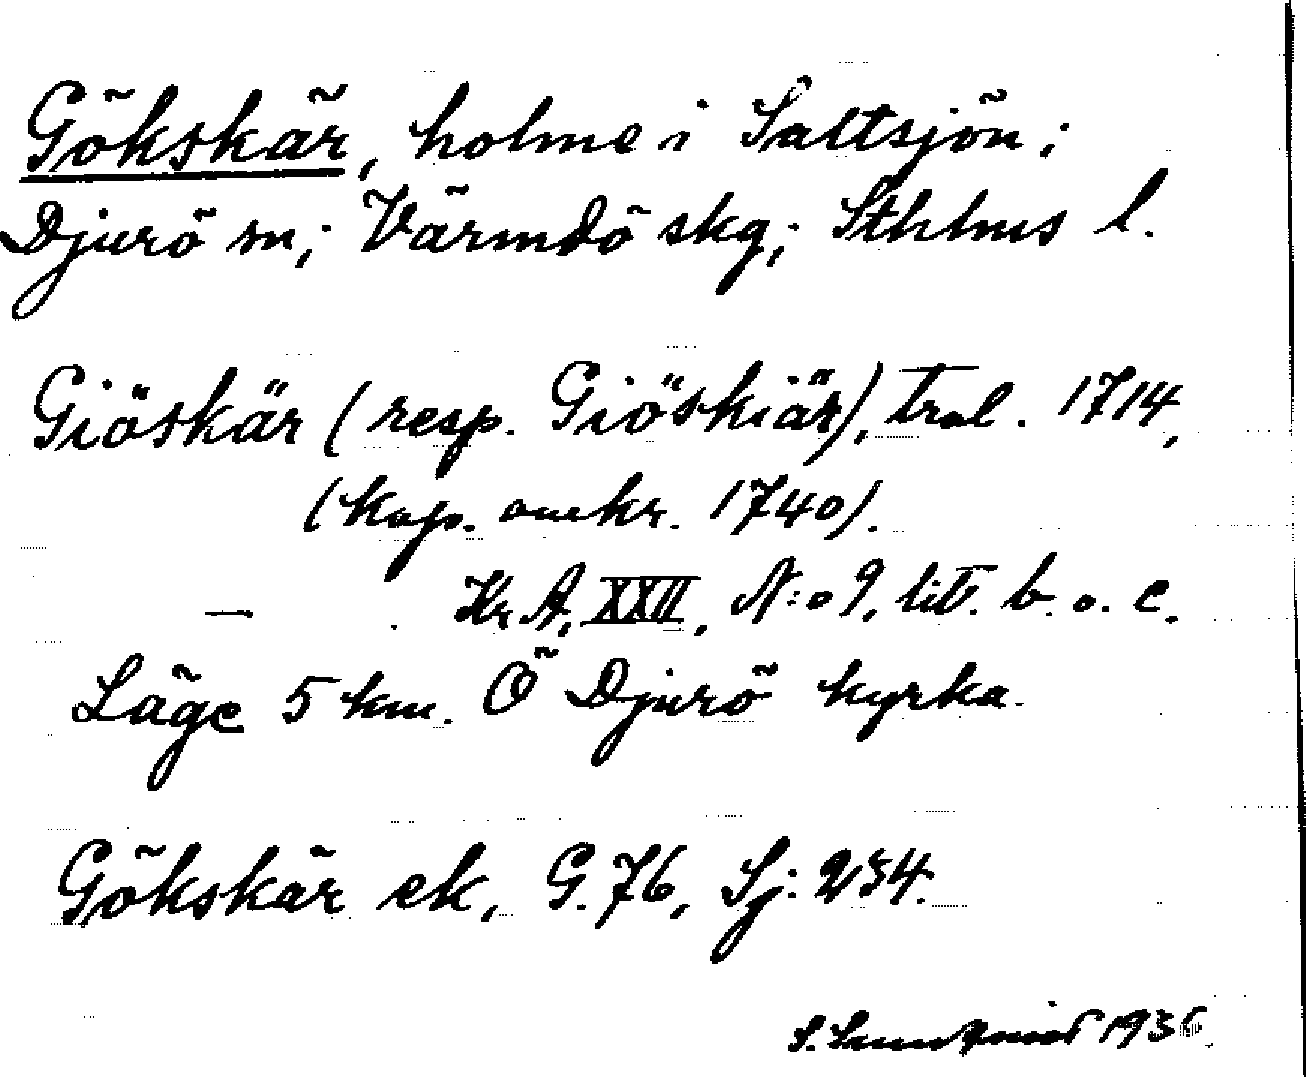 Gökskär, holme i Saltsjön;
Djurö sn; Värmdö skg; Sthlms l.
Giöskär (resp. Giöskiär), tral. 1714,
(kop. omkr. 1740).
— Kr. A, XXII, N:o 9, lit. b. o. c.
Läge 5 km. Ö Djurö kyrka.
Gökskär ek, G. 76, Sj: 234.
S. 193